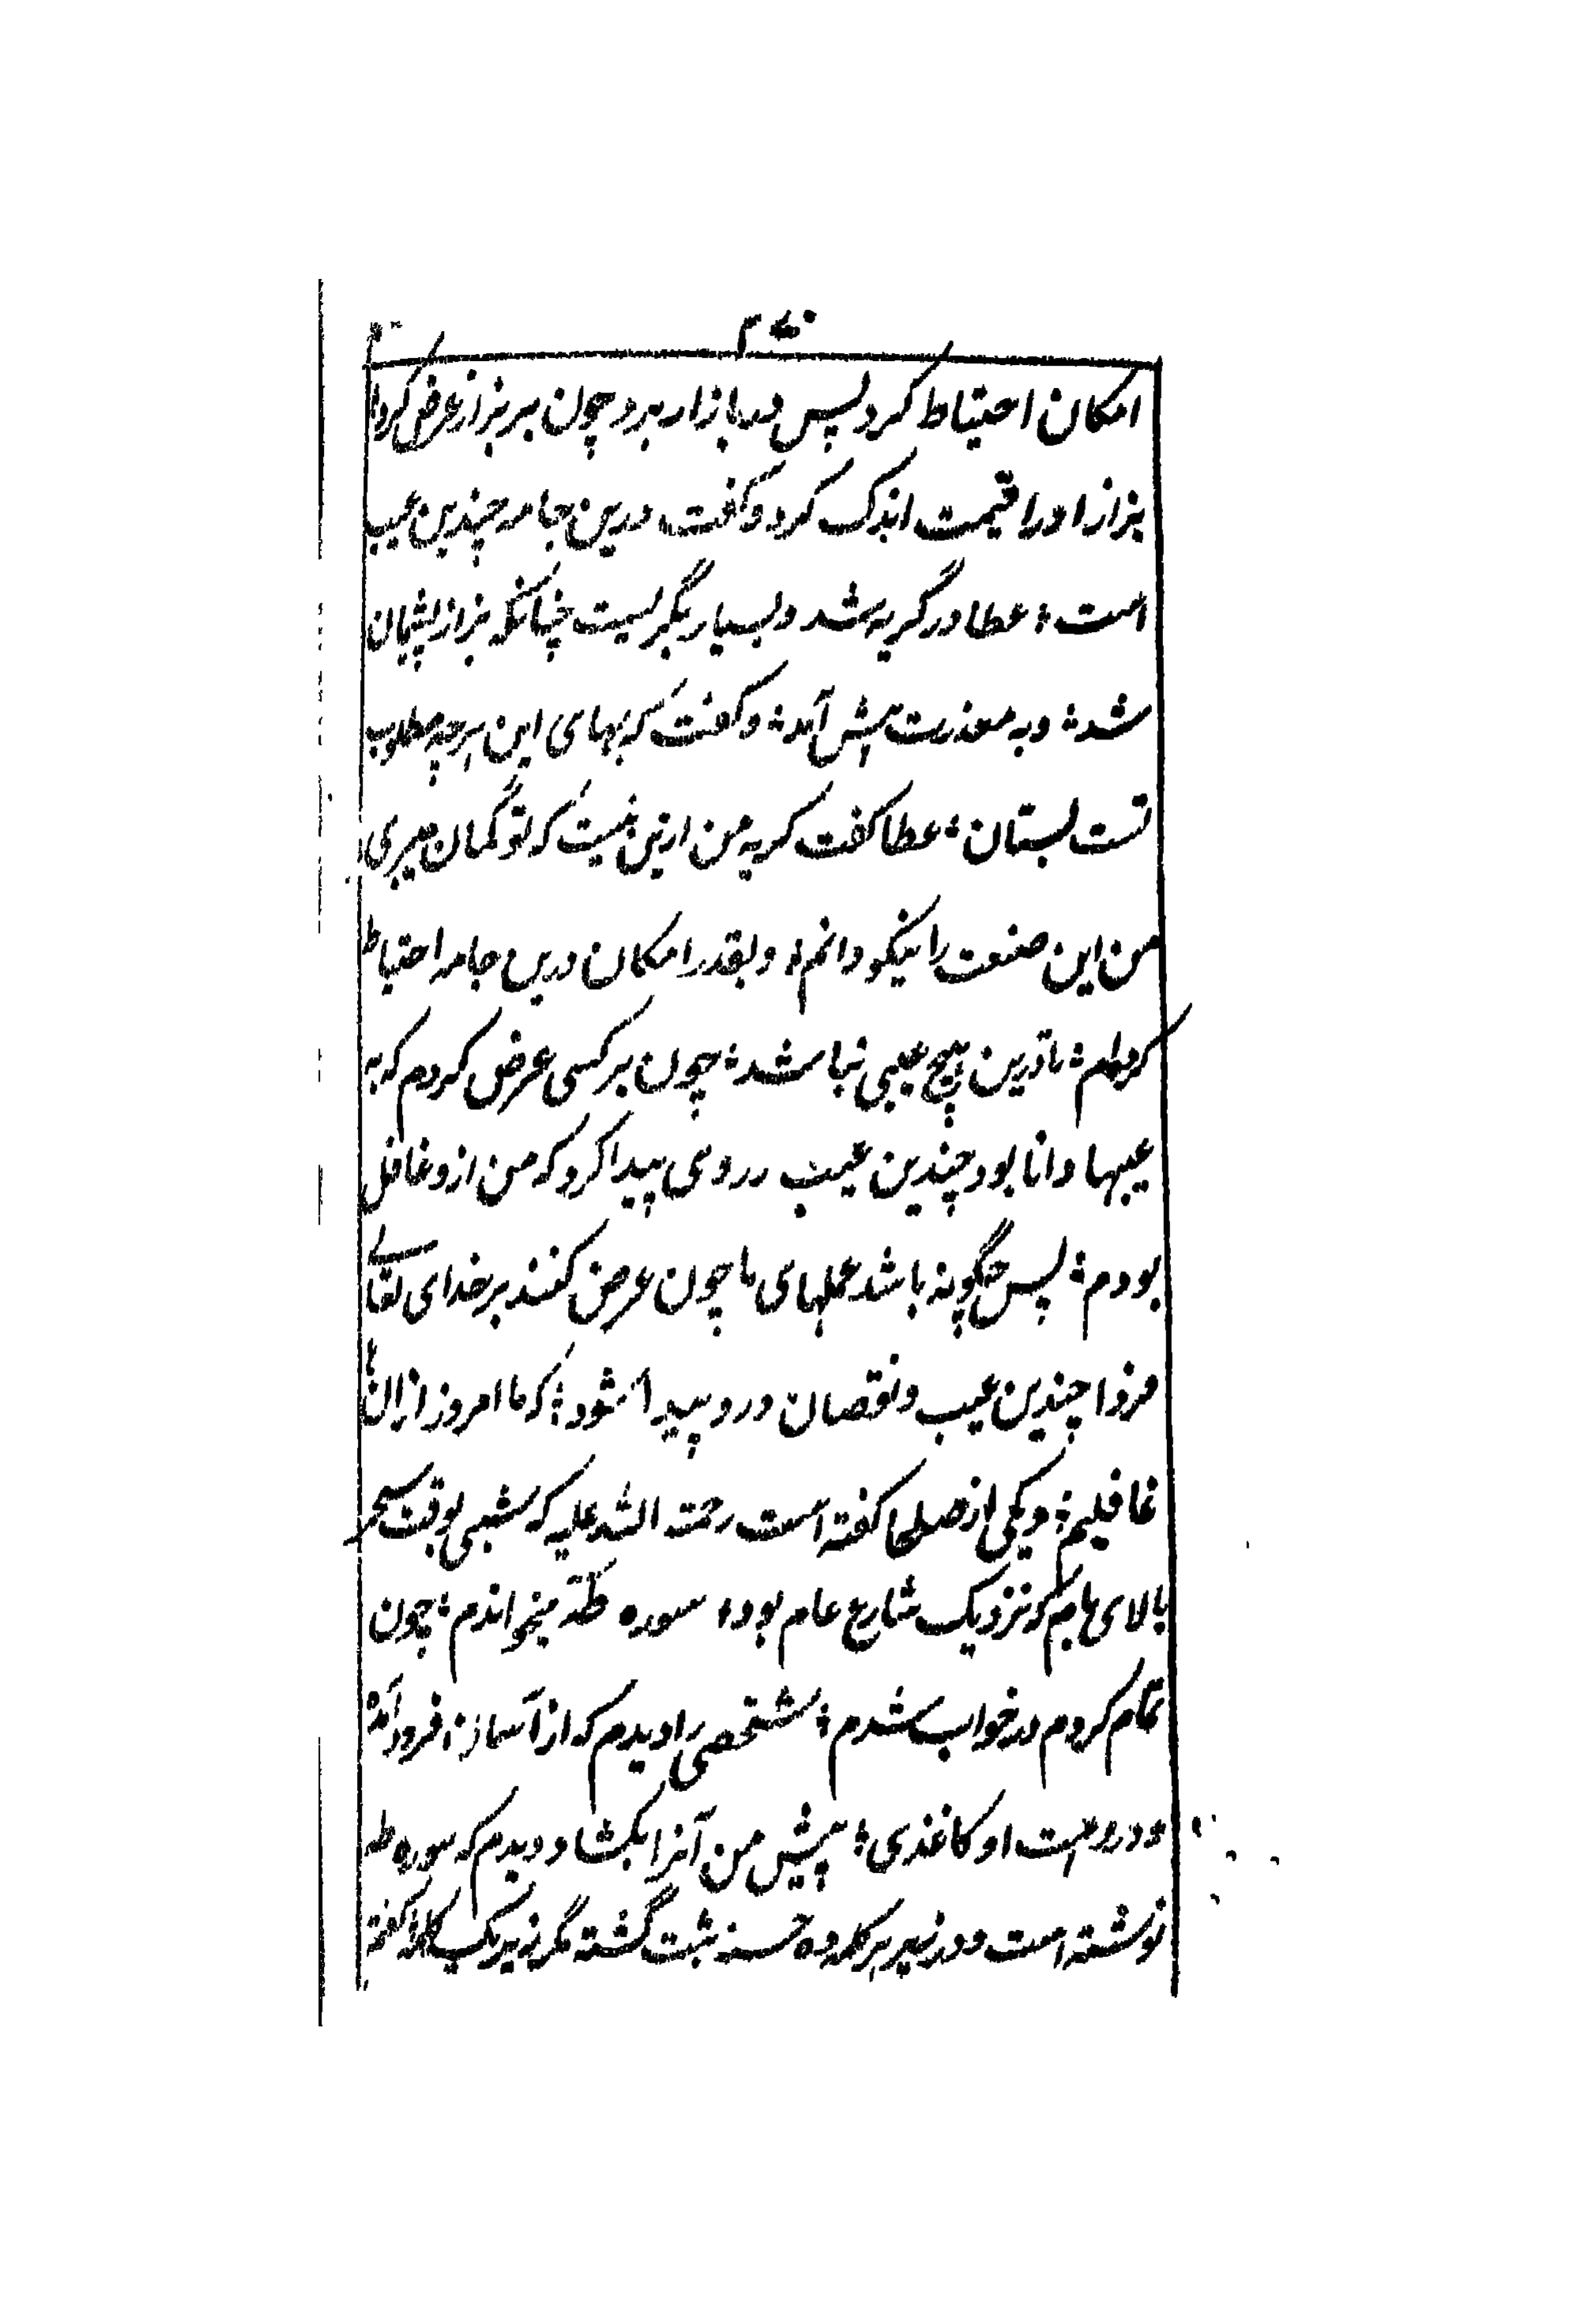 امکان احتیاط کرد پس در بازار برد چون بر بزاز عرض کرد
بزاز اورا قیمت اندک کرد و گفت درین جامه چندین عیب
است؛ عطا در گریه شد و بسیار بگریست چنانکه بزاز پشیمان
شد؛ و به معذرت پیش آمد؛ و گفت که بهای این هرچه مطلوب
تست بستان؛ عطا گفت گریه من ازین نیست که تو گمان میبری
من این صنعت را نیکو دانم؛ و بقدر امکان درین جامه احتیاط
کرده‌ام؛ تا درین هیچ عیبی نباشد؛ چون بر کسی عرض کردم که به
عیبها دانا بود چندین عیب در وی پیدا کرد که من ازو غافل
بودم؛ پس چگونه باشد عملهای ما چون عرض کنند بر خدای تعالے
فردا چندین عیب و نقصان درو پیدا شود؛ که ما امروز ازان
غافلیم؛ و یکی از صلحا گفته است رحمة الله علیه که شبی بوقت سحر
بالای بام که نزدیک شارع عام بود؛ سوره طه میخواندم؛ چون
تمام کردم در خواب شدم؛ شخصی را دیدم که از آسمان فرود آمد
و در دست او کاغذی؛ پیش من آنرا بکشاد دیدم که سوره طه
نوشته است و در زیر هر کلمه ده حسنه ثبت گشته مگر زیر یک کلمه که